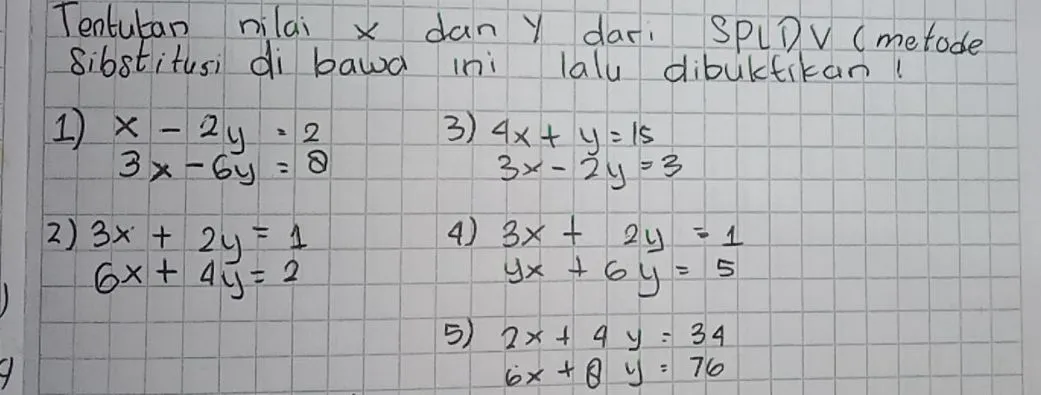 Tentukan nilai x dan y dari SPLDV (metode
Sibstitusi di bawa ini lalu dibuktikan!
1) x - 2y = 2
3x - 6y = 8
2) 3x + 2y = 1
6x + 4y = 2
3) 4x + y = 15
3x - 2y = 3
4) 3x + 2y = 1
4x + 6y = 5
5) 2x + 4y = 34
6x + 8y = 76